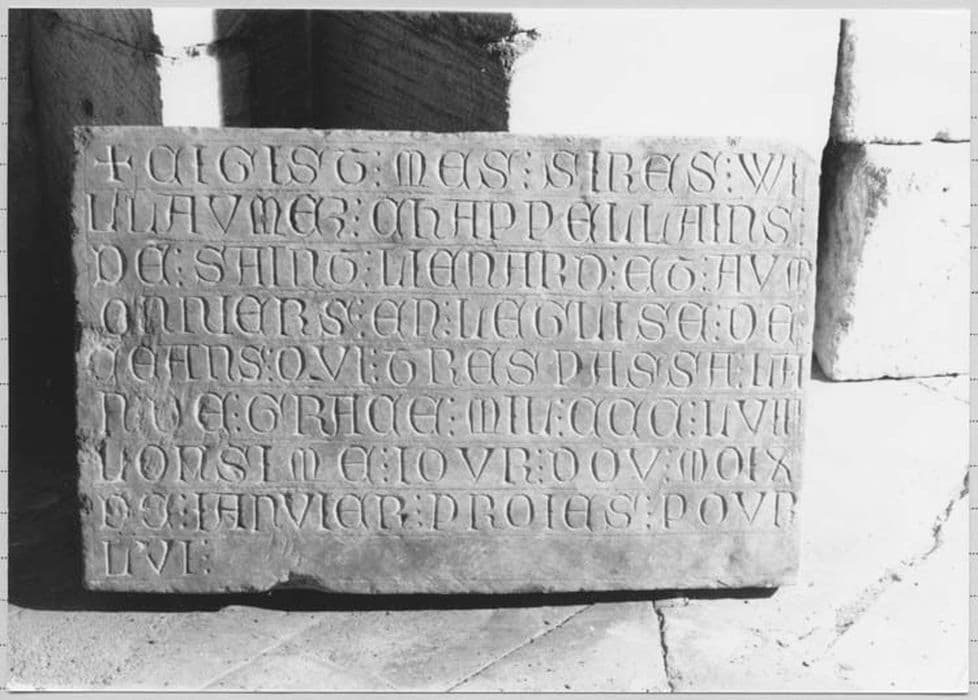 + CIGIST : MES : SIRES : WI
LLAVMEZ : CHAPPELLAINS :
DE : SAINT : LIENARD : ET : AVM
ONNIERS : EN : LEGLISE : DE
CEANS : QVI : TRESPASSA : LA
N : DE : GRACE : MIL : CCC : LVIII
LONSIME : IOVR : DOV : MOIX
DE : IANVIER : PROIES : POVR
LVI :